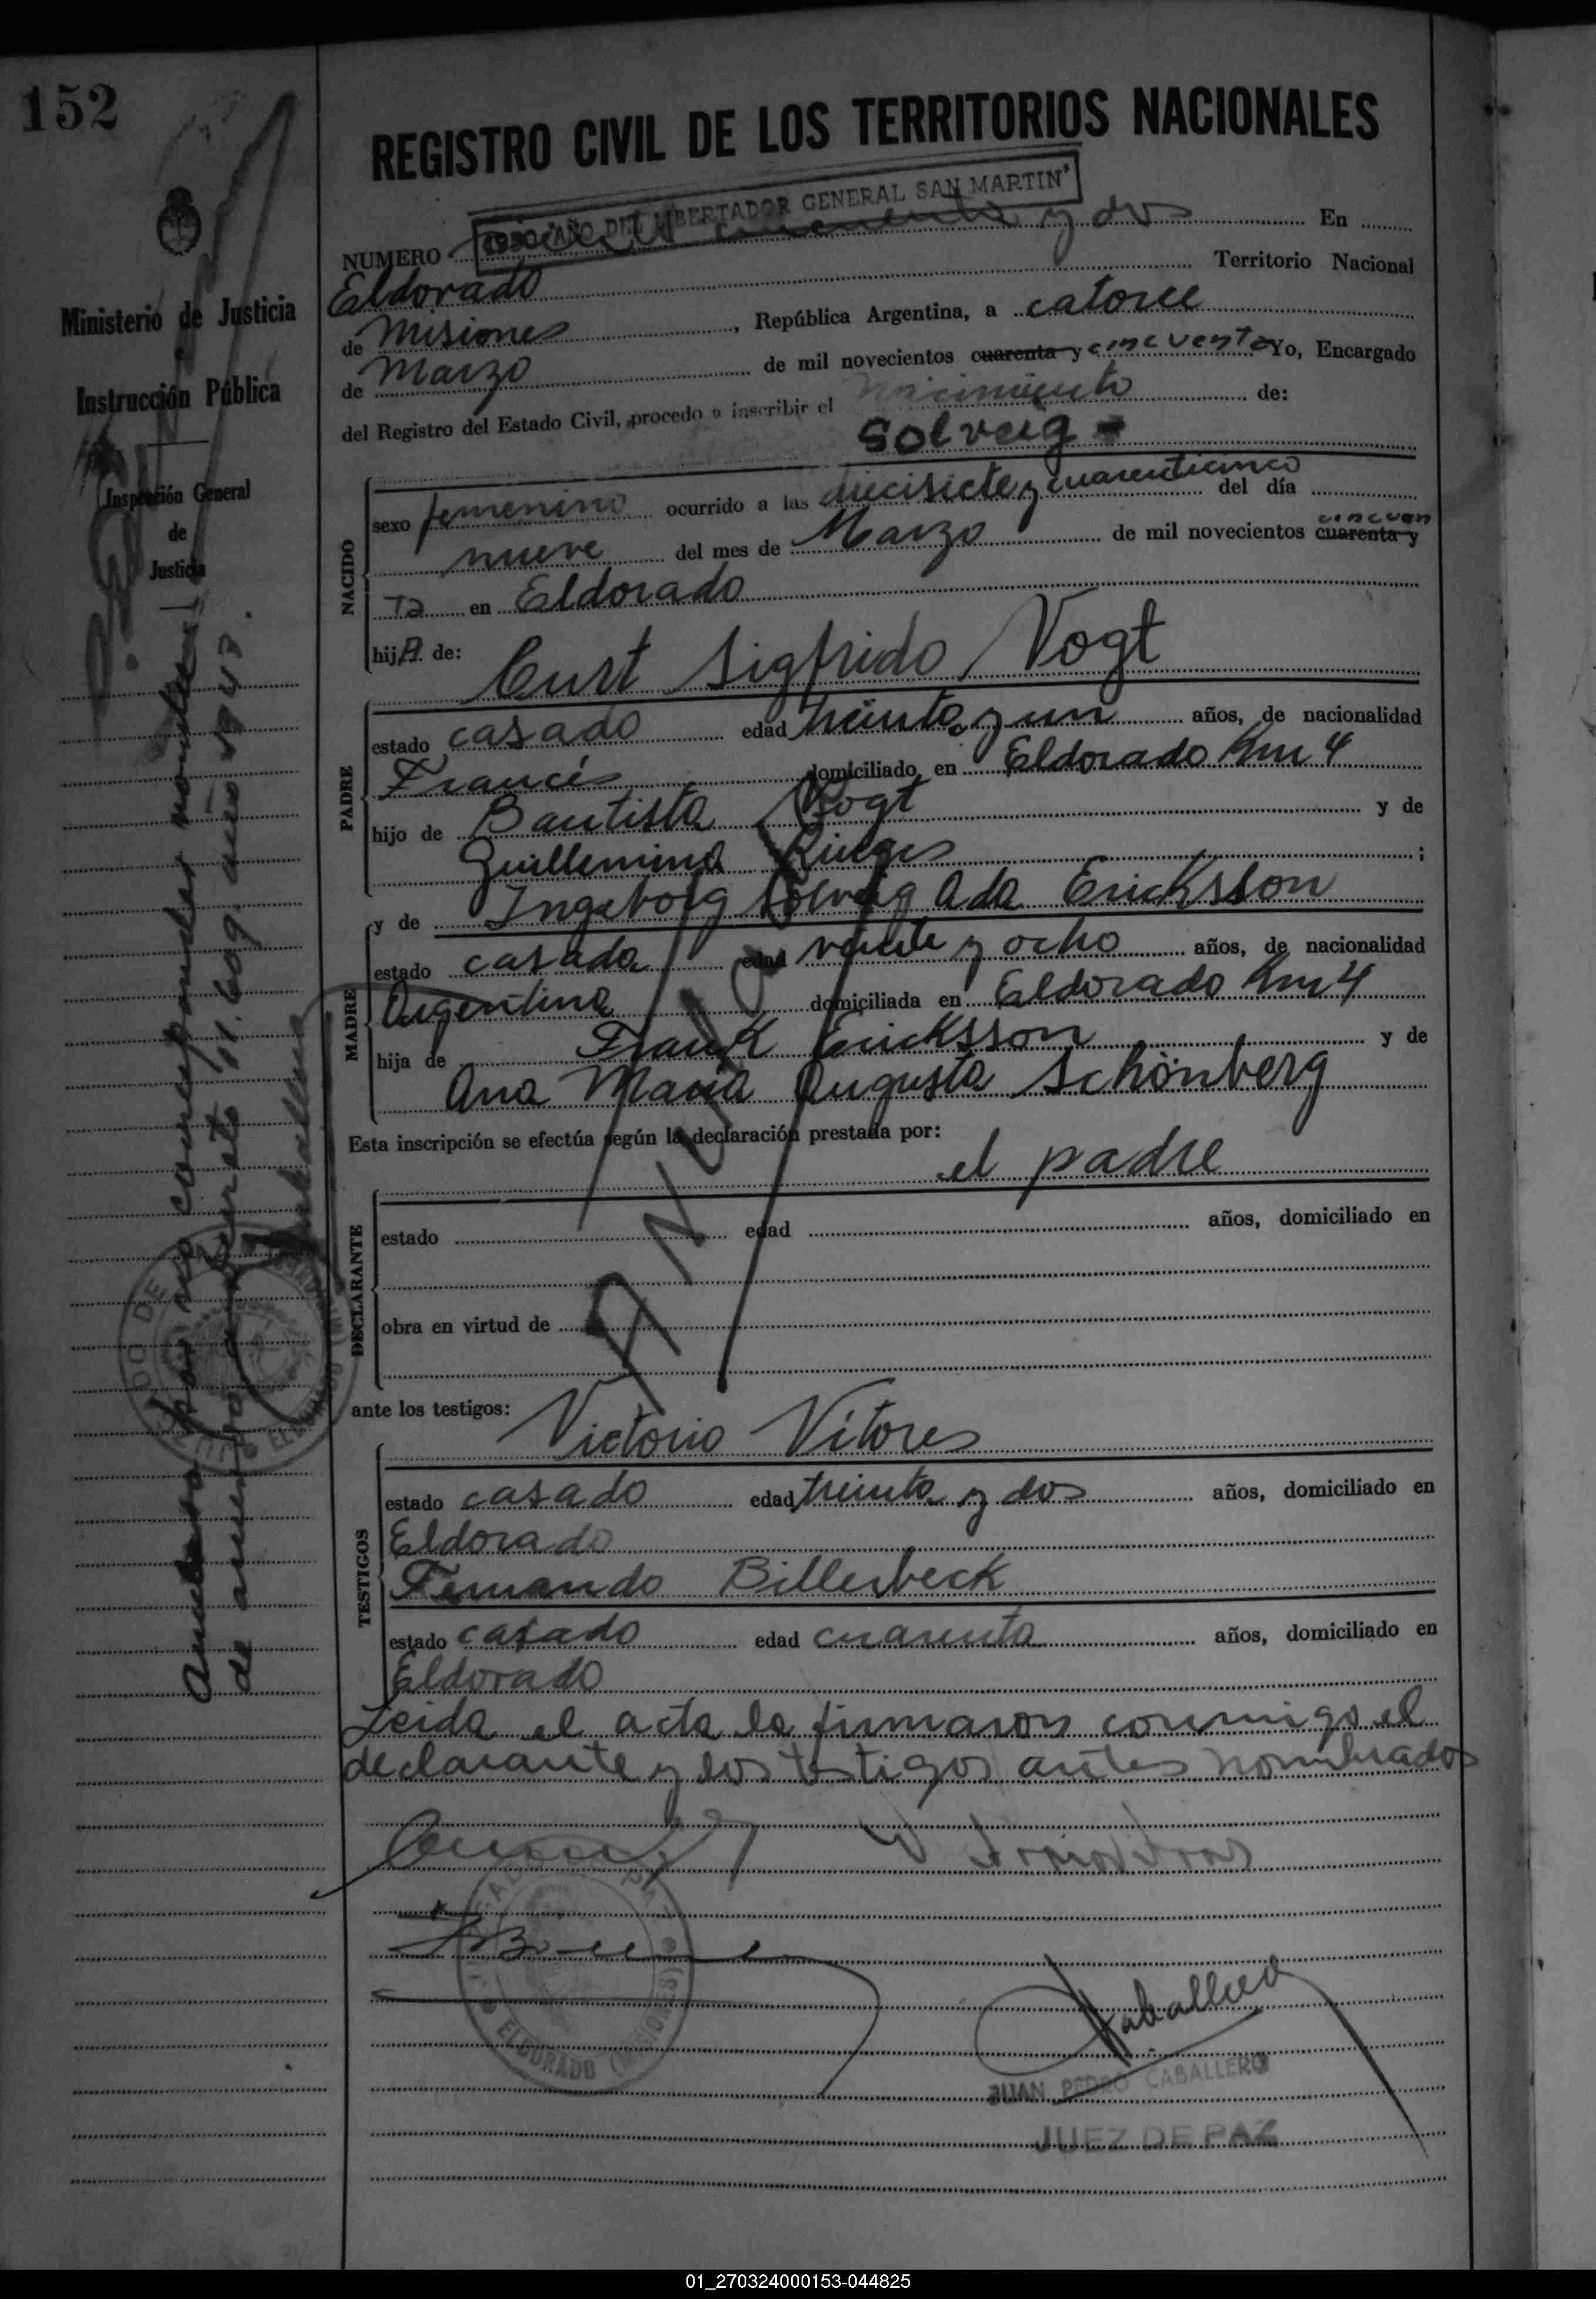 152
REGISTRO CIVIL DE LOS TERRITORIOS NACIONALES
1950 "AÑO DEL LIBERTADOR GENERAL SAN MARTIN"
NUMERO ciento cincuenta y dos En
Eldorado Territorio Nacional
de Misiones, República Argentina, a catorce
de Marzo de mil novecientos cuarenta y cincuenta Yo, Encargado
del Registro del Estado Civil, procedo a inscribir el nacimiento de:
Solveig -
NACIDO
sexo femenino ocurrido a las diecisiete y cuarenticinco del día
nueve del mes de Marzo de mil novecientos cuarenta y cincuen
ta en Eldorado
hijA de:
Curt Sigfrido Vogt
PADRE
estado casado edad treinta y un años, de nacionalidad
Francés domiciliado en Eldorado Km 4
hijo de Bautista Vogt y de
Guillermina ;
y de Ingeborg Solveig Ada Ericksson
MADRE
estado casada edad veinte y ocho años, de nacionalidad
Argentina domiciliada en Eldorado Km 4
hija de Frank Ericksson y de
Ana Maria Augusta Schönberg
Esta inscripción se efectúa según la declaración prestada por:
el padre
DECLARANTE
estado edad años, domiciliado en
obra en virtud de
ANULADO
ante los testigos:
Victorio Vítores
TESTIGOS
estado casado edad treinta y dos años, domiciliado en
Eldorado
Fernando Billerbeck
estado casado edad cuarenta años, domiciliado en
Eldorado
Leida el acta la firmaron conmigo el
declarante y los testigos antes nombrados
Caballero
JUAN PEDRO CABALLERO
JUEZ DE PAZ
ELDORADO (MISIONES)
Ministerio de Justicia
Instrucción Pública
Inspección General
de
Justicia
Anulado por no corresponder nombre
de acuerdo decreto 11.609 año 1943.
01_270324000153-044825